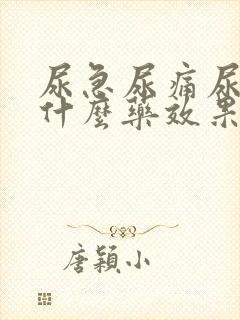 尿急尿痛尿
什麼藥效果
唐穎小